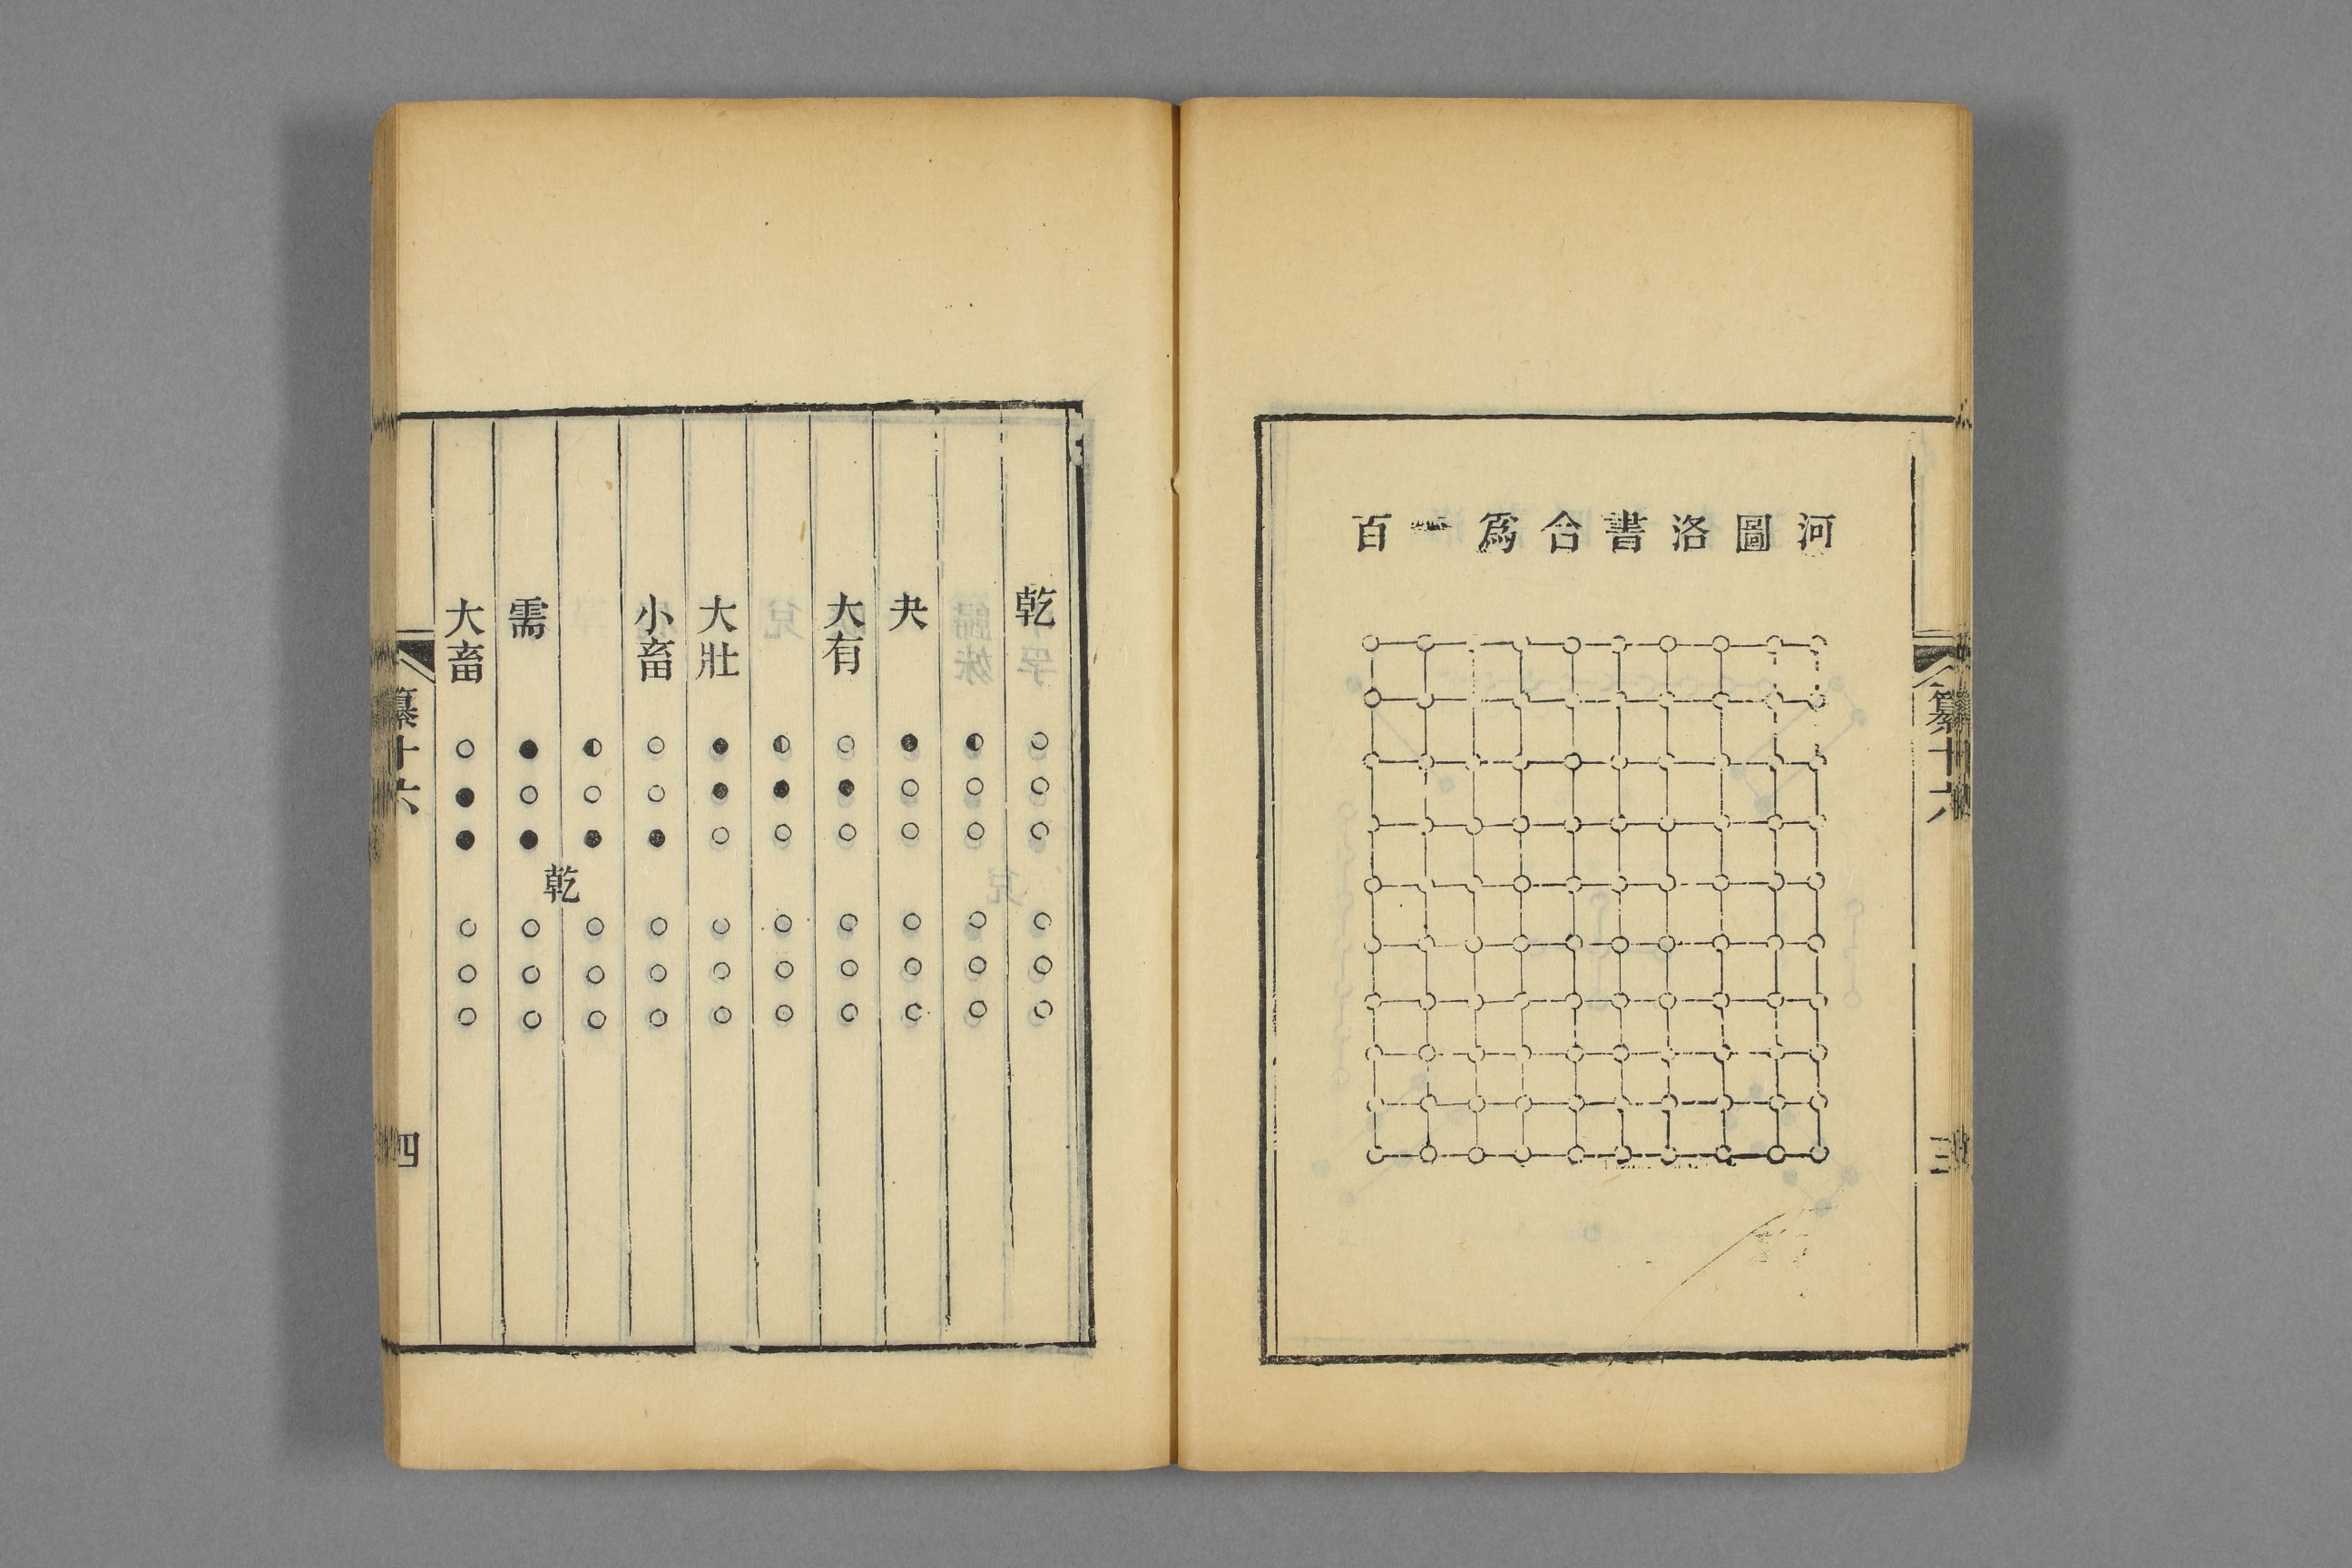 河圖洛書合爲一百
纂十六
三
乾
夬
大有
大壯
小畜
需
大畜
乾
纂十六
四